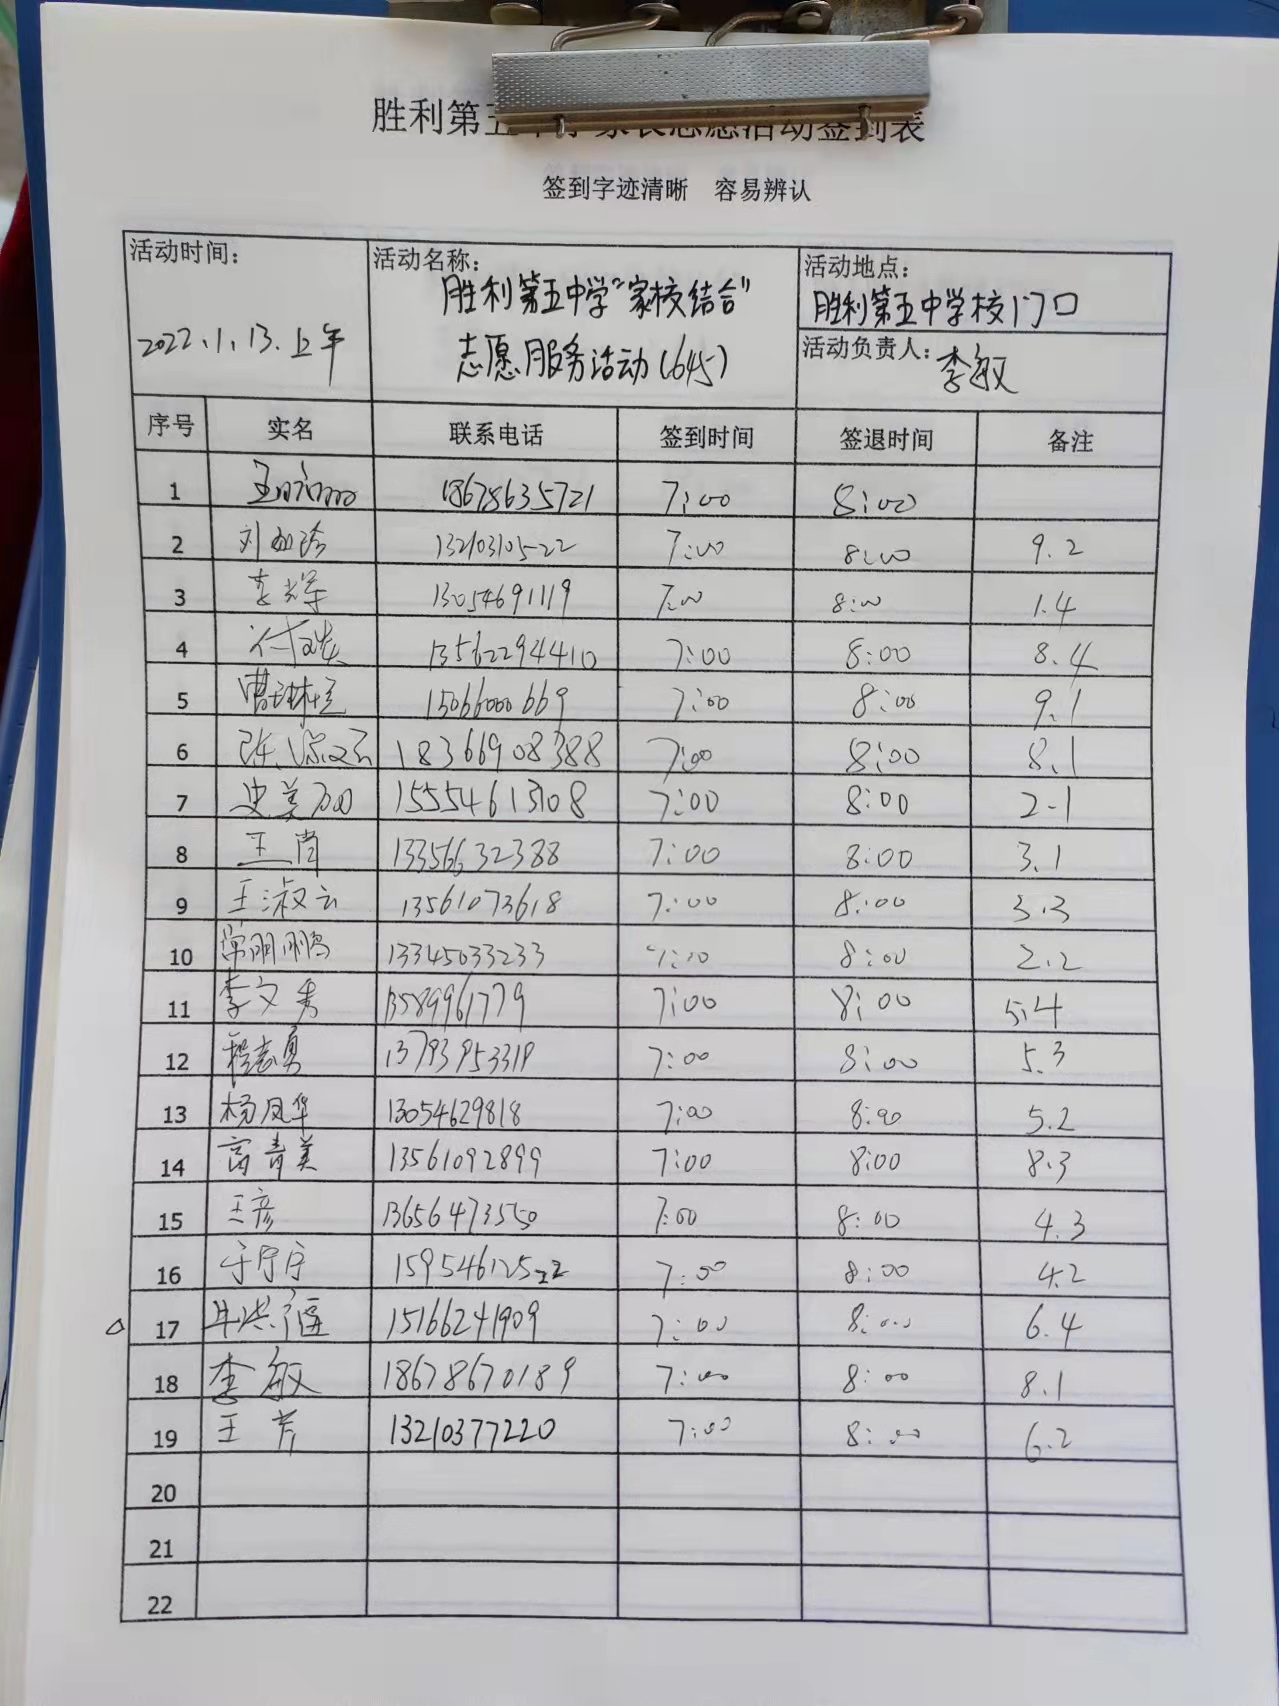 胜利第五中学家长志愿活动签到表
签到字迹清晰 容易辨认
活动时间: 2022.1.13.上午
活动名称: 胜利第五中学"家校结合"
志愿服务活动(645)
活动地点: 胜利第五中学校门口
活动负责人: 李敏
序号 实名 联系电话 签到时间 签退时间 备注
1 18678635721 7:00 8:00
2 13210310522 7:00 8:00 9.2
3 13054691119 7:00 8:00 1.4
4 13562294410 7:00 8:00 8.4
5 曹琳 15066000669 7:00 8:00 9.1
6 18366908388 7:00 8:00 8.1
7 史美 15554613108 7:00 8:00 2-1
8 王尚 13356632388 7:00 8:00 3.1
9 王淑云 13561073618 7:00 8:00 3.3
10 常明鹏 13345033233 8:00 2.2
11 李文秀 13589961779 7:00 8:00 5.4
12 程志勇 13793953319 7:00 8:00 5.3
13 杨凤华 13054629818 7:00 8:00 5.2
14 高青美 13561092899 7:00 8:00 8.3
15 王彦 13656473550 7:00 8:00 4.3
16 于宁宁 15954612522 7:00 8:00 4.2
17 牛洪福 15166241909 7:00 8:00 6.4
18 李敏 18678670189 7:00 8:00 8.1
19 王芳 13210377220 7:00 8:00 6.2
20
21
22